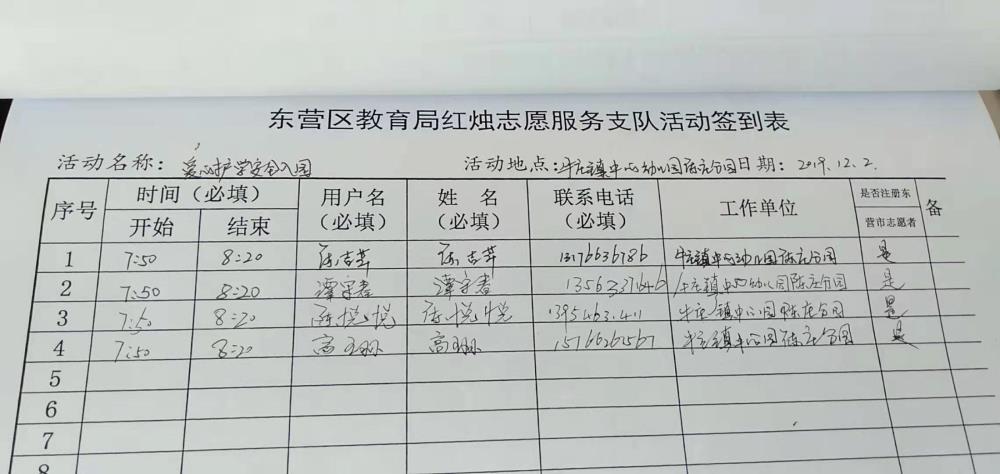 东营区教育局红烛志愿服务支队活动签到表
活动名称：爱心护学安全入园 活动地点：牛庄镇中心幼儿园陈庄分园 日期：2019.12.2.
序号 时间（必填） 用户名（必填） 姓 名（必填） 联系电话（必填） 工作单位 是否注册东营市志愿者 备
开始 结束
1 7:50 8:20 牛庄镇中心幼儿园陈庄分园 是
2 7:50 8:20 谭字春 谭字春 牛庄镇中心幼儿园陈庄分园 是
3 7:50 8:20 陈悦悦 陈悦悦 牛庄镇中心园陈庄分园 是
4 7:50 8:20 高 高 15766261567 牛庄镇中心园陈庄分园 是
5
6
7
8